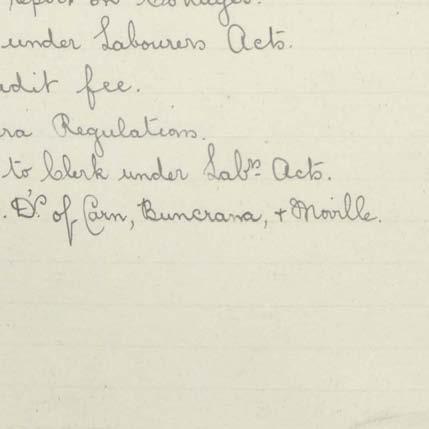 report on Cottages.
under Labourers Acts.
audit fee.
ra Regulations.
to Clerk under Labrs. Acts.
. D's. of Carn, Buncrana, + Moville.